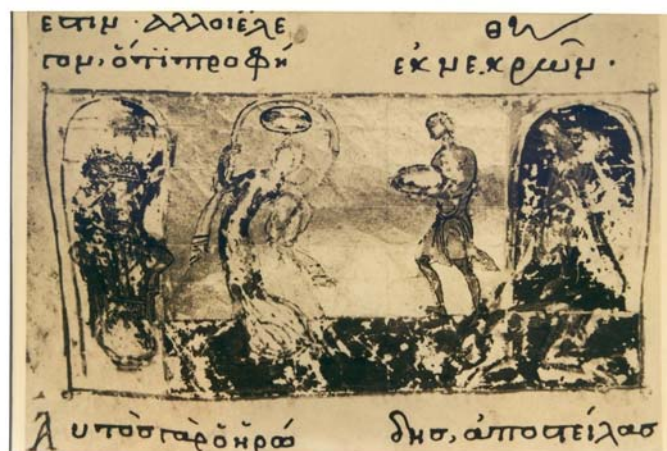 ἐστιν· ἄλλοι ἔλε
γον, ὅτι προφή
θη
ἐκ νεκρῶν·
Αὐτὸς γὰρ ὁ ἡρώ
δης, ἀποστείλας